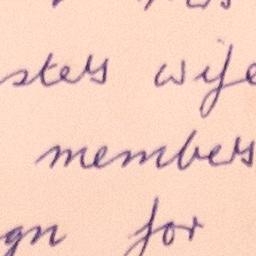 sters wife
members
gn for